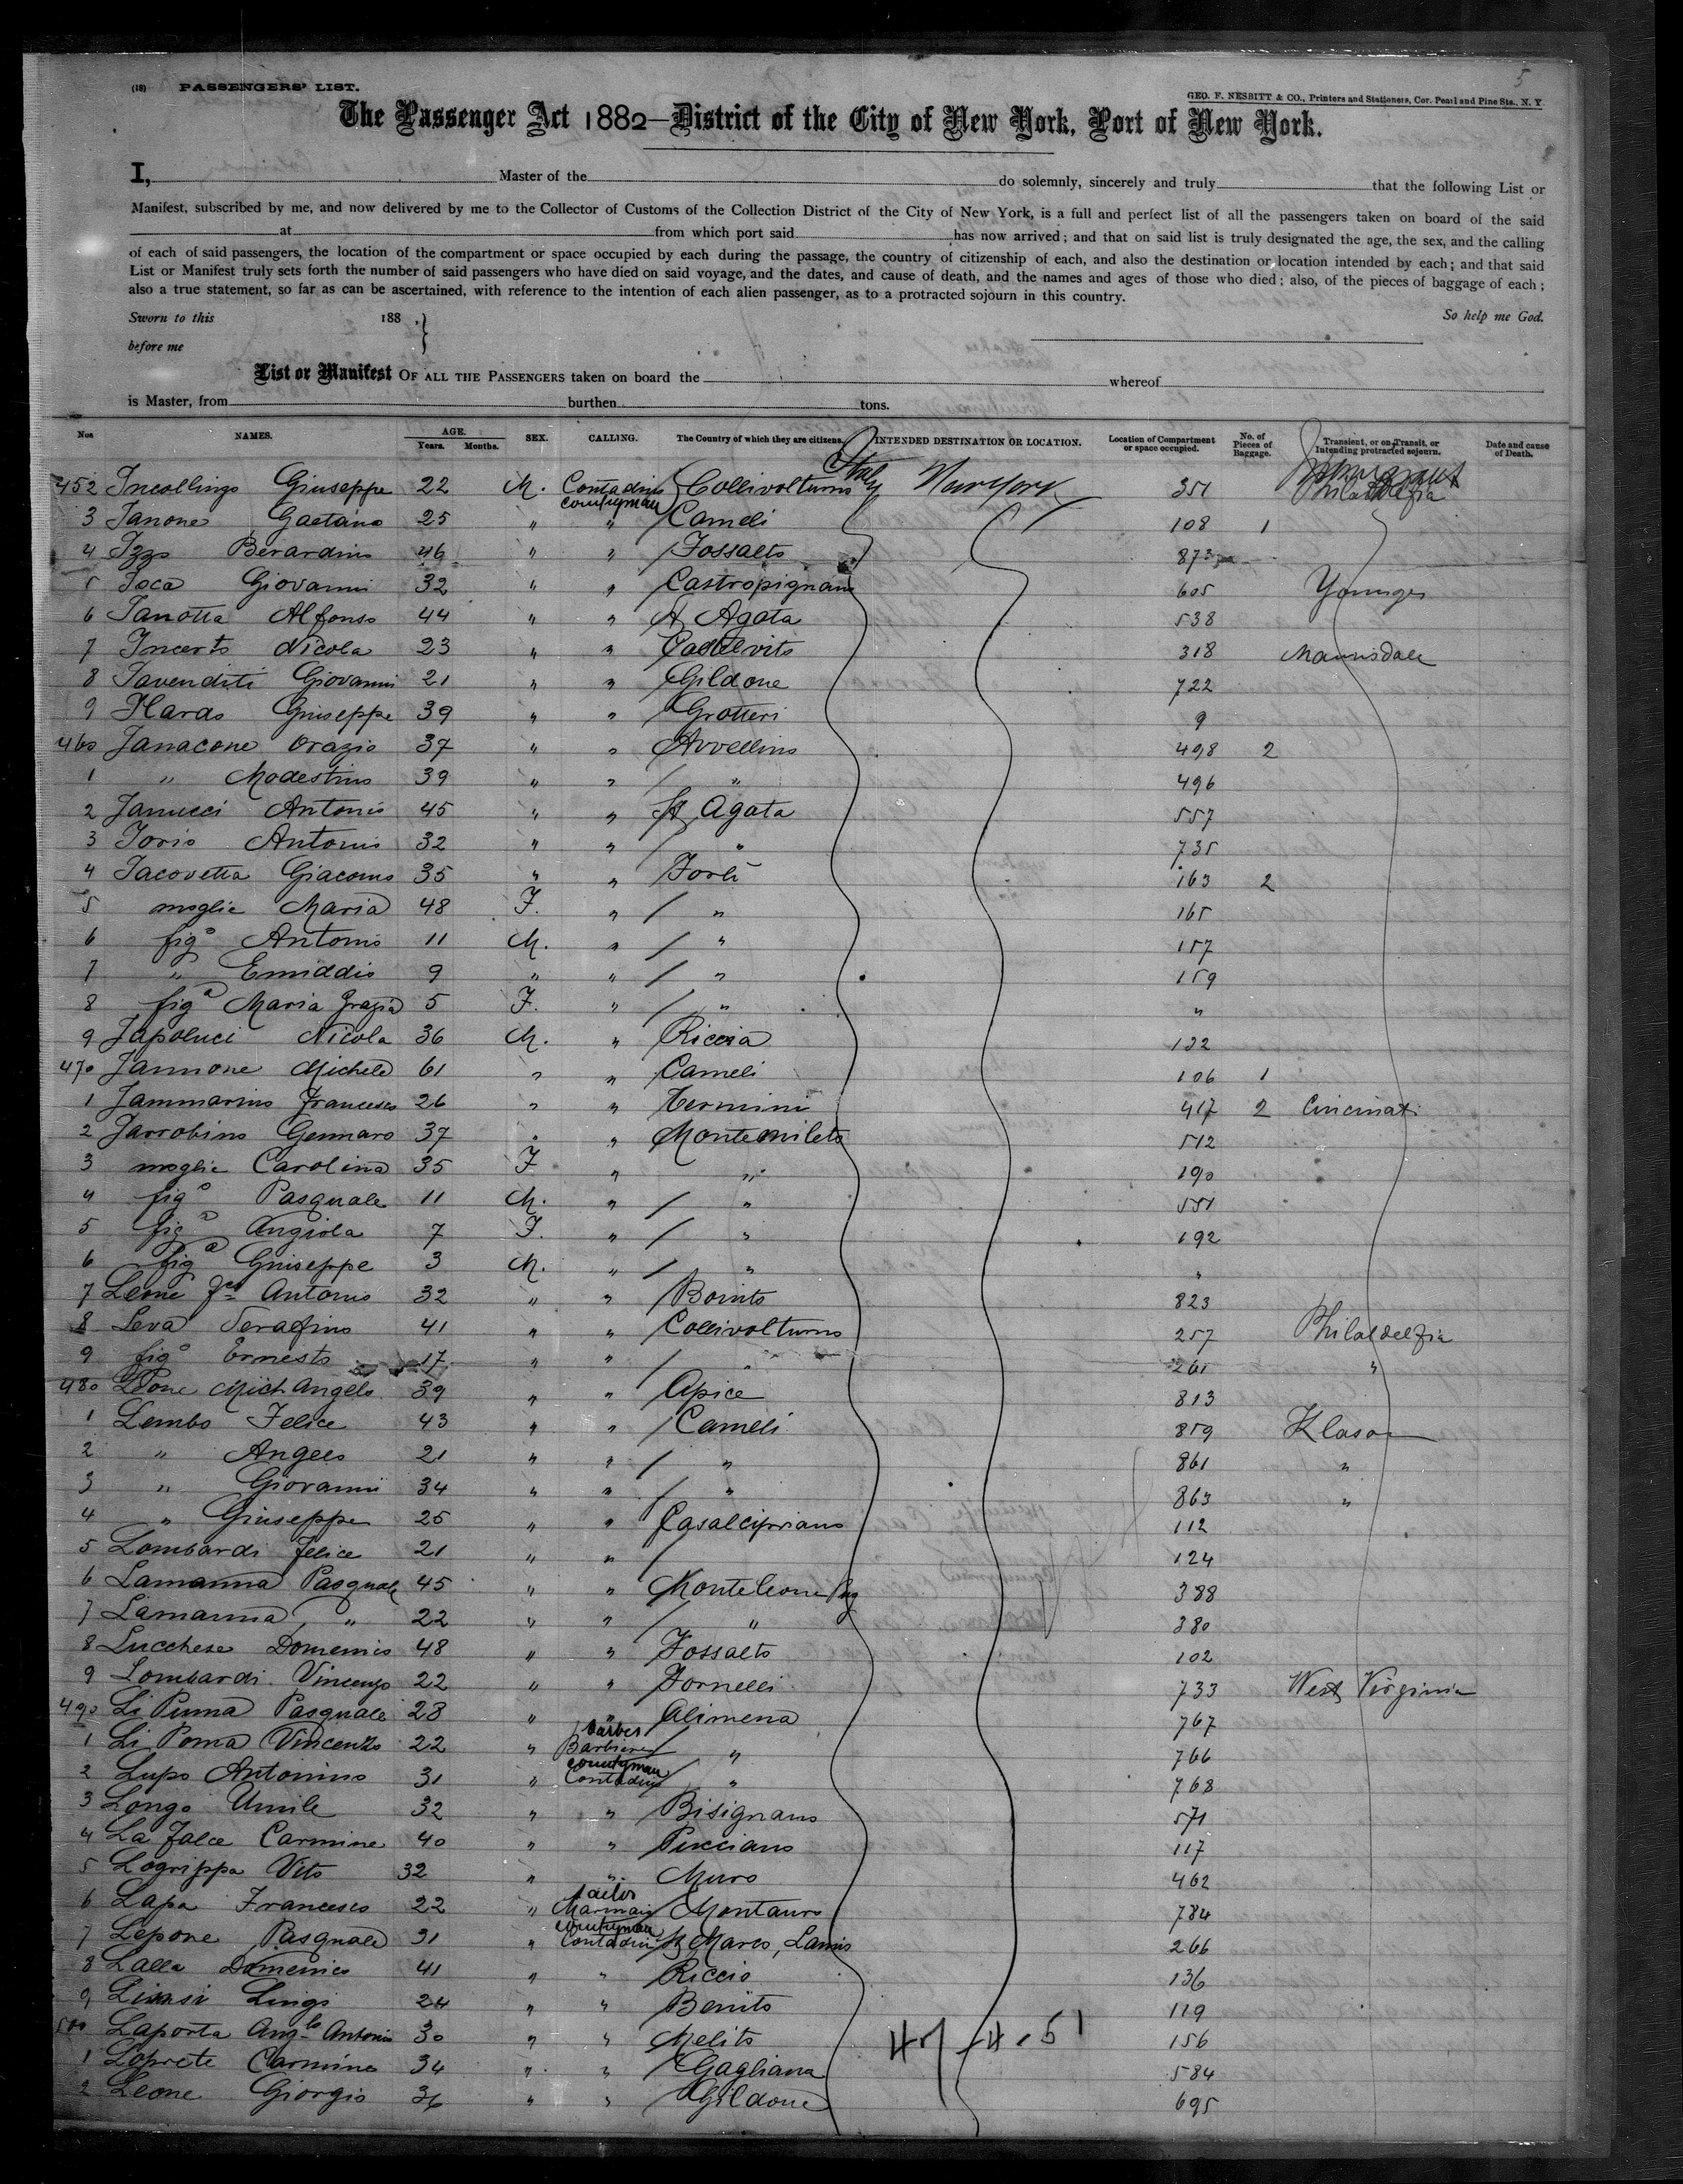 5
(18) PASSENGERS' LIST.
GEO. F. NESBITT & CO., Printers and Stationers, Cor. Pearl and Pine Sts., N. Y.
The Passenger Act 1882—District of the City of New York, Port of New York.
I, Master of the do solemnly, sincerely and truly that the following List or
Manifest, subscribed by me, and now delivered by me to the Collector of Customs of the Collection District of the City of New York, is a full and perfect list of all the passengers taken on board of the said
at from which port said has now arrived; and that on said list is truly designated the age, the sex, and the calling
of each of said passengers, the location of the compartment or space occupied by each during the passage, the country of citizenship of each, and also the destination or location intended by each; and that said
List or Manifest truly sets forth the number of said passengers who have died on said voyage, and the dates, and cause of death, and the names and ages of those who died; also, of the pieces of baggage of each;
also a true statement, so far as can be ascertained, with reference to the intention of each alien passenger, as to a protracted sojourn in this country.
Sworn to this 188 . } So help me God.
before me
List or Manifest OF ALL THE PASSENGERS taken on board the whereof
is Master, from burthen tons.
Nos NAMES. AGE. Years. Months. SEX. CALLING. The Country of which they are citizens. INTENDED DESTINATION OR LOCATION. Location of Compartment or space occupied. No. of Pieces of Baggage. Transient, or on Transit, or Intending protracted sojourn. Date and cause of Death.
452 Incollingo Giuseppe 22 M. Contadino countryman Collivolturno Italy New York 351 Philaldelfia
3 Ianone Gaetano 25 " " Cameli 108 1
4 Izzo Berardino 46 " " Fossalto 873
5 Ioca Giovanni 32 " " Castropignano 605
6 Ianotta Alfonso 44 " " St Agata 538
7 Incerto Nicola 23 " " Castelvito 318
8 Iavenditi Giovanni 21 " " Gildone 722
9 Ilardo Giuseppe 39 " " Grotteri 9
460 Janacone Orazio 37 " " Avvellino 498 2
1 " Modestino 39 " " " 496
2 Janucci Antonio 45 " " St Agata 557
3 Iorio Antonio 32 " " " 735
4 Iacovetta Giacomo 35 " " Forli 163 2
5 moglie Maria 48 F. " " 165
6 figo Antonio 11 M. " " 157
7 " Emiddio 9 " " " 159
8 figa Maria Grazia 5 F. " " "
9 Japoluci Nicola 36 M. " Riccia 132
470 Jannone Michele 61 " " Cameli 106 1
1 Jammarino Francesco 26 " " Termini 417 2 Cincinati
2 Jarrobino Gennaro 37 " " Montemileto 512
3 moglie Carolina 35 F " " 190
4 figo Pasquale 11 M. " " 551
5 figa Angiola 7 F. " " 192
6 figo Giuseppe 3 M. " " "
7 Leone Fco Antonio 32 " " Bonito 823
8 Leva Serafino 41 " " Collivolturno 257 Philaldelfia
9 figo Ernesto 17 " " " 261 "
480 Leone Mich Angelo 39 " " Apice 813
1 Lembo Felice 43 " " Cameli 859
2 " Angelo 21 " " " 861 "
3 " Giovanni 34 " " " 863 "
4 " Giuseppe 25 " " Casalcipriano 112
5 Lombardi Felice 21 " " 124
6 Lamanna Pasquale 45 " " Monteleone 388
7 Lamanna " 22 " " " 380
8 Lucchese Domenico 48 " " Fossalto 102
9 Lombardi Vincenzo 22 " " Fornelli 733 West Virginia
490 Li Puma Pasquale 28 " " Alimena 767
1 Li Poma Vincenzo 22 " barber Barbiere " 766
2 Lupo Antonino 31 " countryman Contadino " 768
3 Longo Umile 32 " " Bisignano 571
4 La Falce Carmine 40 " " Pucciano 117
5 Logrippa Vito 32 " " Muro 462
6 Lapa Francesco 22 " sailor Marinaio Montauro 784
7 Lepone Pasquale 31 " countryman Contadino St Marco, Lamis 266
8 Lalla Domenico 41 " " Riccio 136
9 Luigi 24 " " Bonito 119
500 Laporta Anglo Antonio 30 " " Melito 156
1 Loprete Carmine 34 " " Gagliana 584
2 Leone Giorgio 36 " " Gildone 695